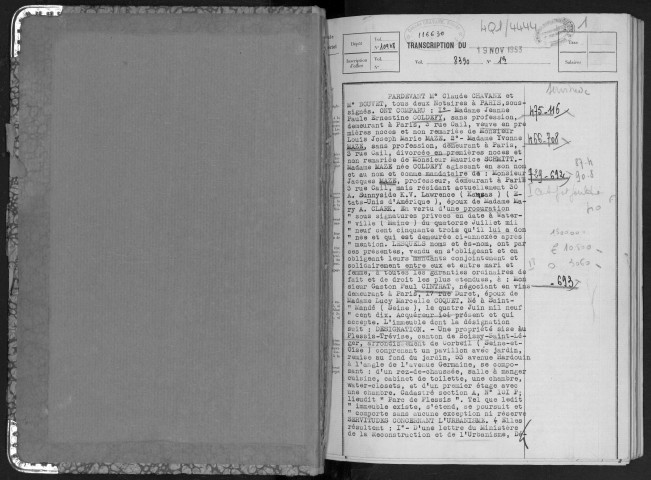 116630
4Q1/4444
1
Dépôt
Vol.
TRANSCRIPTION DU
19 NOV 1953
Taxe
Vol. 8390 n° 19
Salaires
PARDEVANT Me Claude CHAVANE et
Me DOUVET, tous deux Notaires à PARIS, sous-
signés. ONT COMPARU : 1°- Madame Jeanne
Paule Ernestine COLDEFY, sans profession,
demeurant à Paris, 3 rue Cail, veuve en pre
mières noces et non remariée de Monsieur
Louis Joseph Marie MAZE, 2°- Madame Yvonne
MAZE, sans profession, demeurant à Paris,
3 rue Cail, divorcée en premières noces et
non remariée de Monsieur Maurice SCHMITT,-
Madame MAZE née COLDEFY agissant en son nom
et au nom et comme mandataire de : Monsieur
Jacques MAZE, professeur, demeurant à Paris
3 rue Cail, mais résidant actuellement 50
A. Sunnyside K.V. Lawrence ( Kansas ) ( E-
tats-Unis d'Amérique ), époux de Madame Ma-
ry A. CLARK. En vertu d'une procuration
" sous signatures privées en date à Water-
" ville ( Maine ) du quatorze Juillet mil
" neuf cent cinquante trois qu'il lui a don
" née et qui est demeurée ci-annexée après
" mention. LESQUELS noms et ès-nom, ont par
ces présentes, vendu en s'obligeant et en
obligeant leurs mandants conjointement et
solidairement entre eux et entre mari et
femme, à toutes les garanties ordinaires de
fait et de droit les plus étendues, à : Mon
sieur Gaston Paul CINTRAT, négociant en vins
demeurant à Paris, 17 rue Duret, époux de
Madame Lucy Marcelle COQUET, Né à Saint-
" Mandé ( Seine ), le quatre Juin mil neuf
" cent dix. Acquéreur ici présent et qui
accepte. L'immeuble dont la désignation
suit : DESIGNATION. - Une propriété sise au
Plessis-Trévise, canton de Boissy-Saint-Lé-
ger, arrondissement de Corbeil ( Seine-et-
Oise ) comprenant un pavillon avec jardin,
remise au fond du jardin, 55 avenue Mardouin
à l'angle de l'avenue Germaine, se compo-
sant : d'un rez-de-chaussée, salle à manger
cuisine, cabinet de toilette, une chambre,
water-closets, et d'un premier étage avec
une chambre. Cadastré section A, N° 101 P;
lieudit " Parc du Plessis". Tel que ledit
" immeuble existe, s'étend, se poursuit et
" comporte sans aucune exception ni réserve
SERVITUDES CONCERNANT L'URBANISME. Elles
résultent : I°- D'une lettre du Ministère
de la Reconstruction et de l'Urbanisme, Dé-
475-116
466-708
789-693
-693